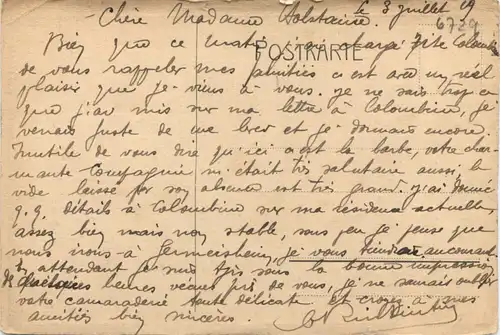 le 3 juillet 19
6729
Chère Madame
Bien que ce matin j'ai chargé Colombine
POSTKARTE
de vous rappeler mes amitiés c'est avec un réel
plaisir que je viens à vous. je ne sais trop ce
que j'ai mis sur ma lettre à Colombine, je
venais juste de me lever et je dormais encore.
Inutile de vous dire qu'ici c'est la barbe, votre char-
mante compagnie m'était très salutaire aussi le
vide laissé par son absence est très grand. j'ai donné
q.q. détails à Colombine sur ma résidence actuelle,
assez bien mais non stable, sous peu je pense que
nous irons à Germersheim, je vous tiendrai au courant
En attendant je suis sous la bonne impression
de quelques heures vécues près de vous, je ne saurais oublier
votre camaraderie toute délicate et croyez à mes
amitiés bien sincères.